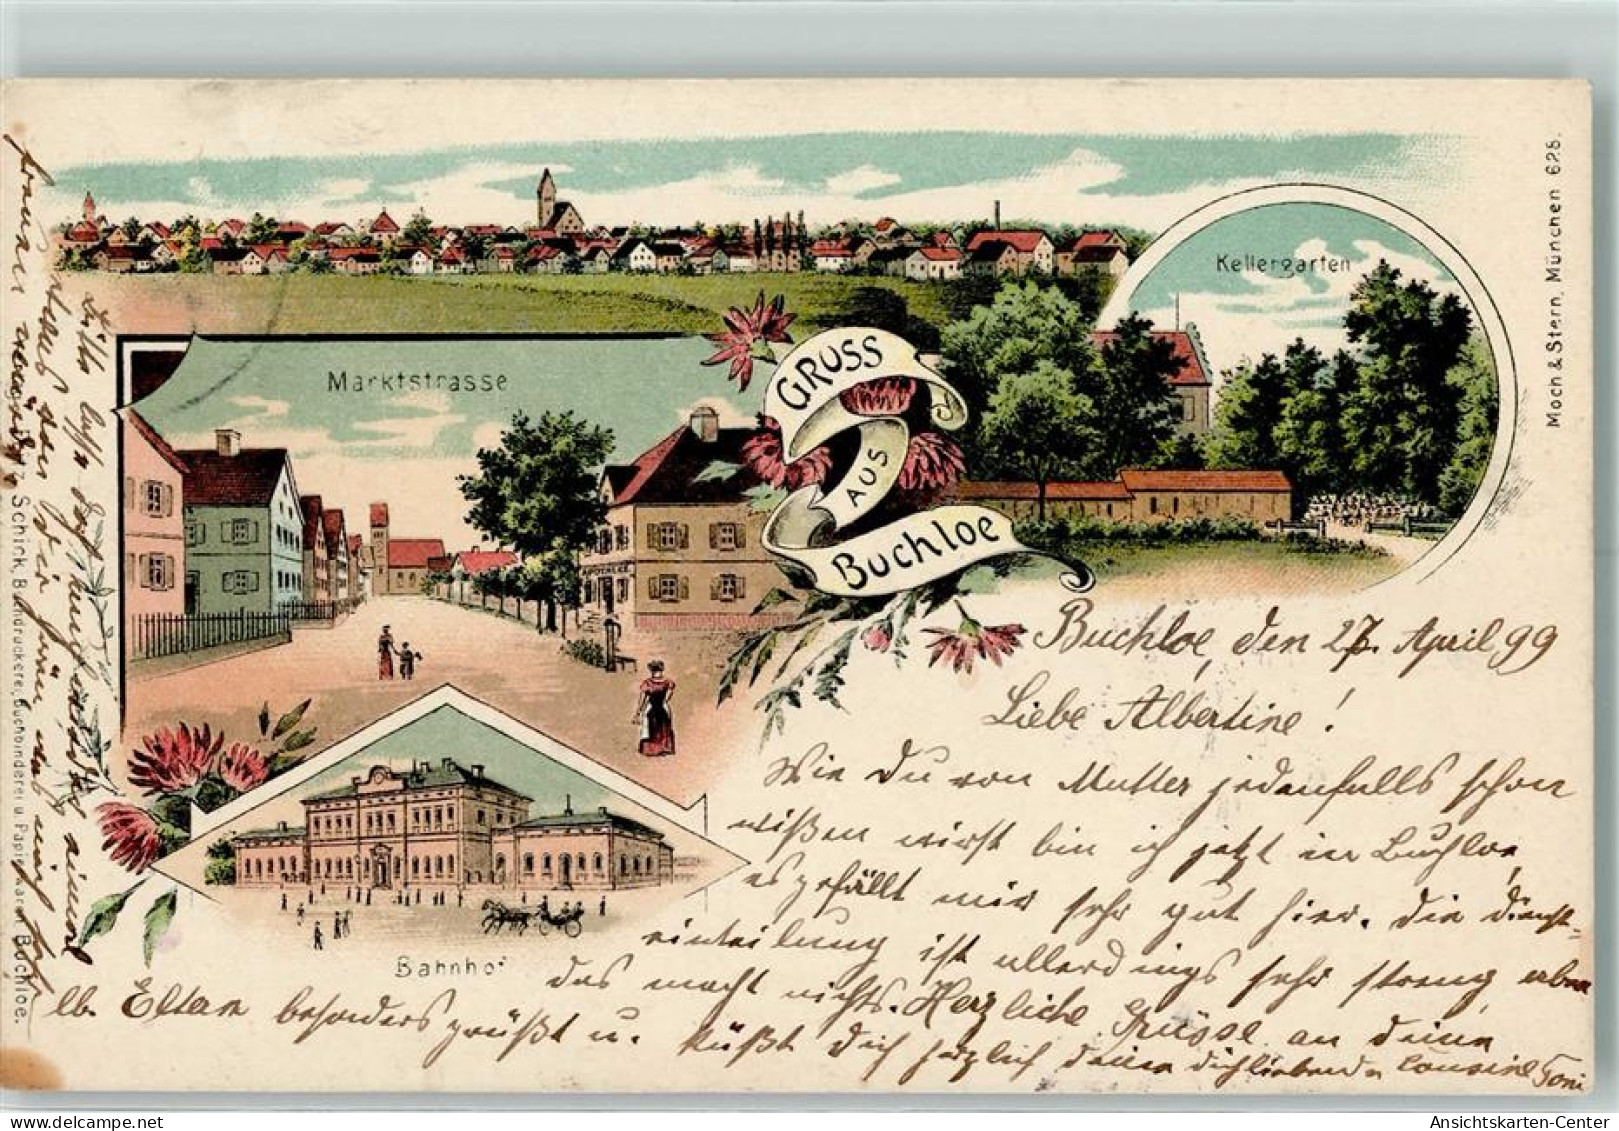 Kellergarten
Marktstrasse
GRUSS
AUS
Buchloe
APOTHEKE
Bahnhof
Moch & Stern, München 628.
Schick, Buchdruckerei, Buchbinderei u. Papierwaren Buchloe.
Buchloe, den 27. April 99
Liebe Albertine!
Wie Du von Mutter jedenfalls schon
wißen wirst bin ich jetzt in Buchloe,
es gefällt mir sehr gut hier. Die Dienst-
einteilung ist allerdings sehr streng aber
das macht nichts. Herzliche Grüsse an deine
lb. Eltern besonders grüßt u. küßt Dich herzlich deine dichliebende Cousine Toni
Bitte laße
Ansichtskarten-Center